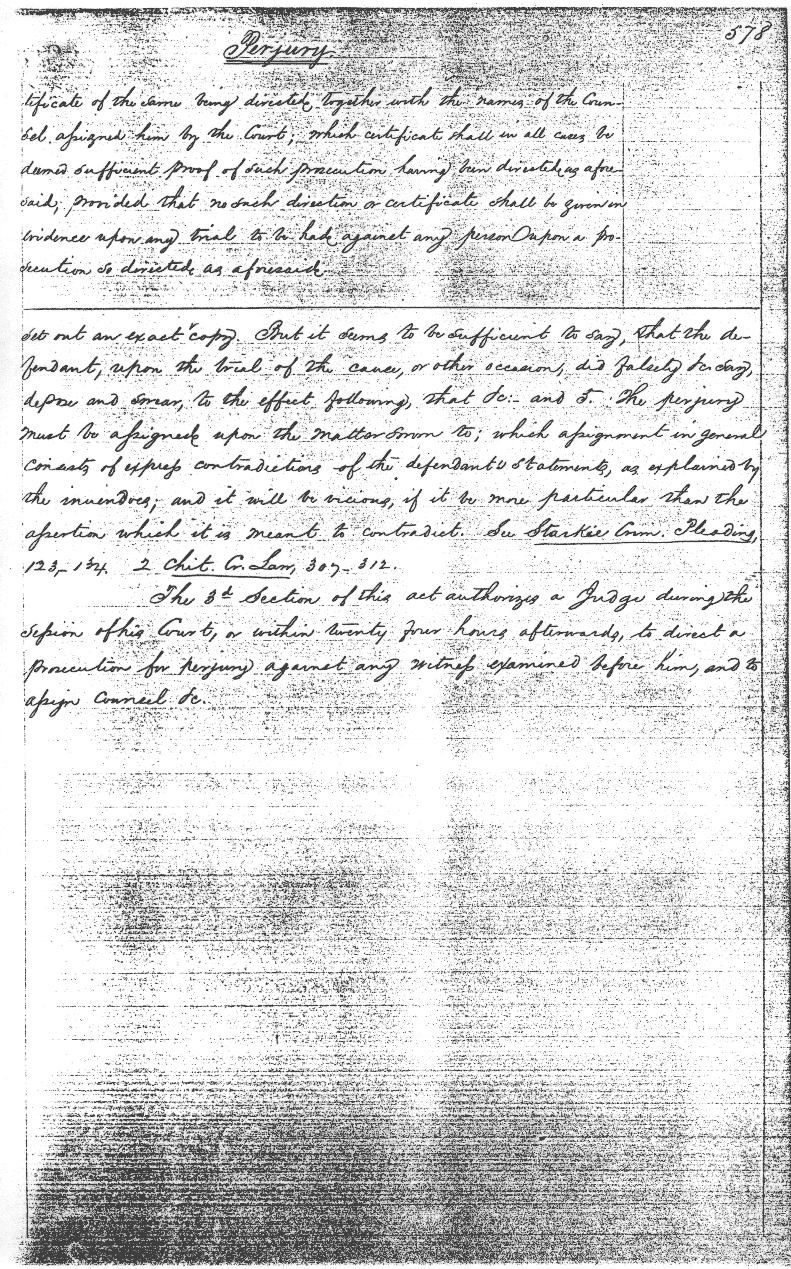 578
Perjury.
tificate of the same being directed, together with the names of the Coun-
sel assigned him by the Court; which certificate shall in all cases be
deemed sufficient proof of such prosecution having been directed as afore-
said; provided that no such direction or certificate shall be given in
evidence upon any trial to be had against any person upon a pro-
secution so directed as aforesaid.
set out an exact copy. But it seems to be sufficient to say, that the de-
fendant, upon the trial of the cause, or other occasion, did falsely &c. say,
depose and swear, to the effect following, that &c:- and 5. The perjury
must be assigned upon the matter sworn to; which assignment in general
consists of express contradictions of the defendant's statements, as explained by
the inuendoes; and it will be vicious, if it be more particular than the
assertion which it is meant to contradict. See Starkie Crim. Pleading,
123-134. 2 Chit. Cr. Law, 307-312.
The 3d Section of this act authorizes a Judge during the
Session of his Court, or within twenty four hours afterwards, to direct a
prosecution for perjury against any witness examined before him, and to
assign Council &c.